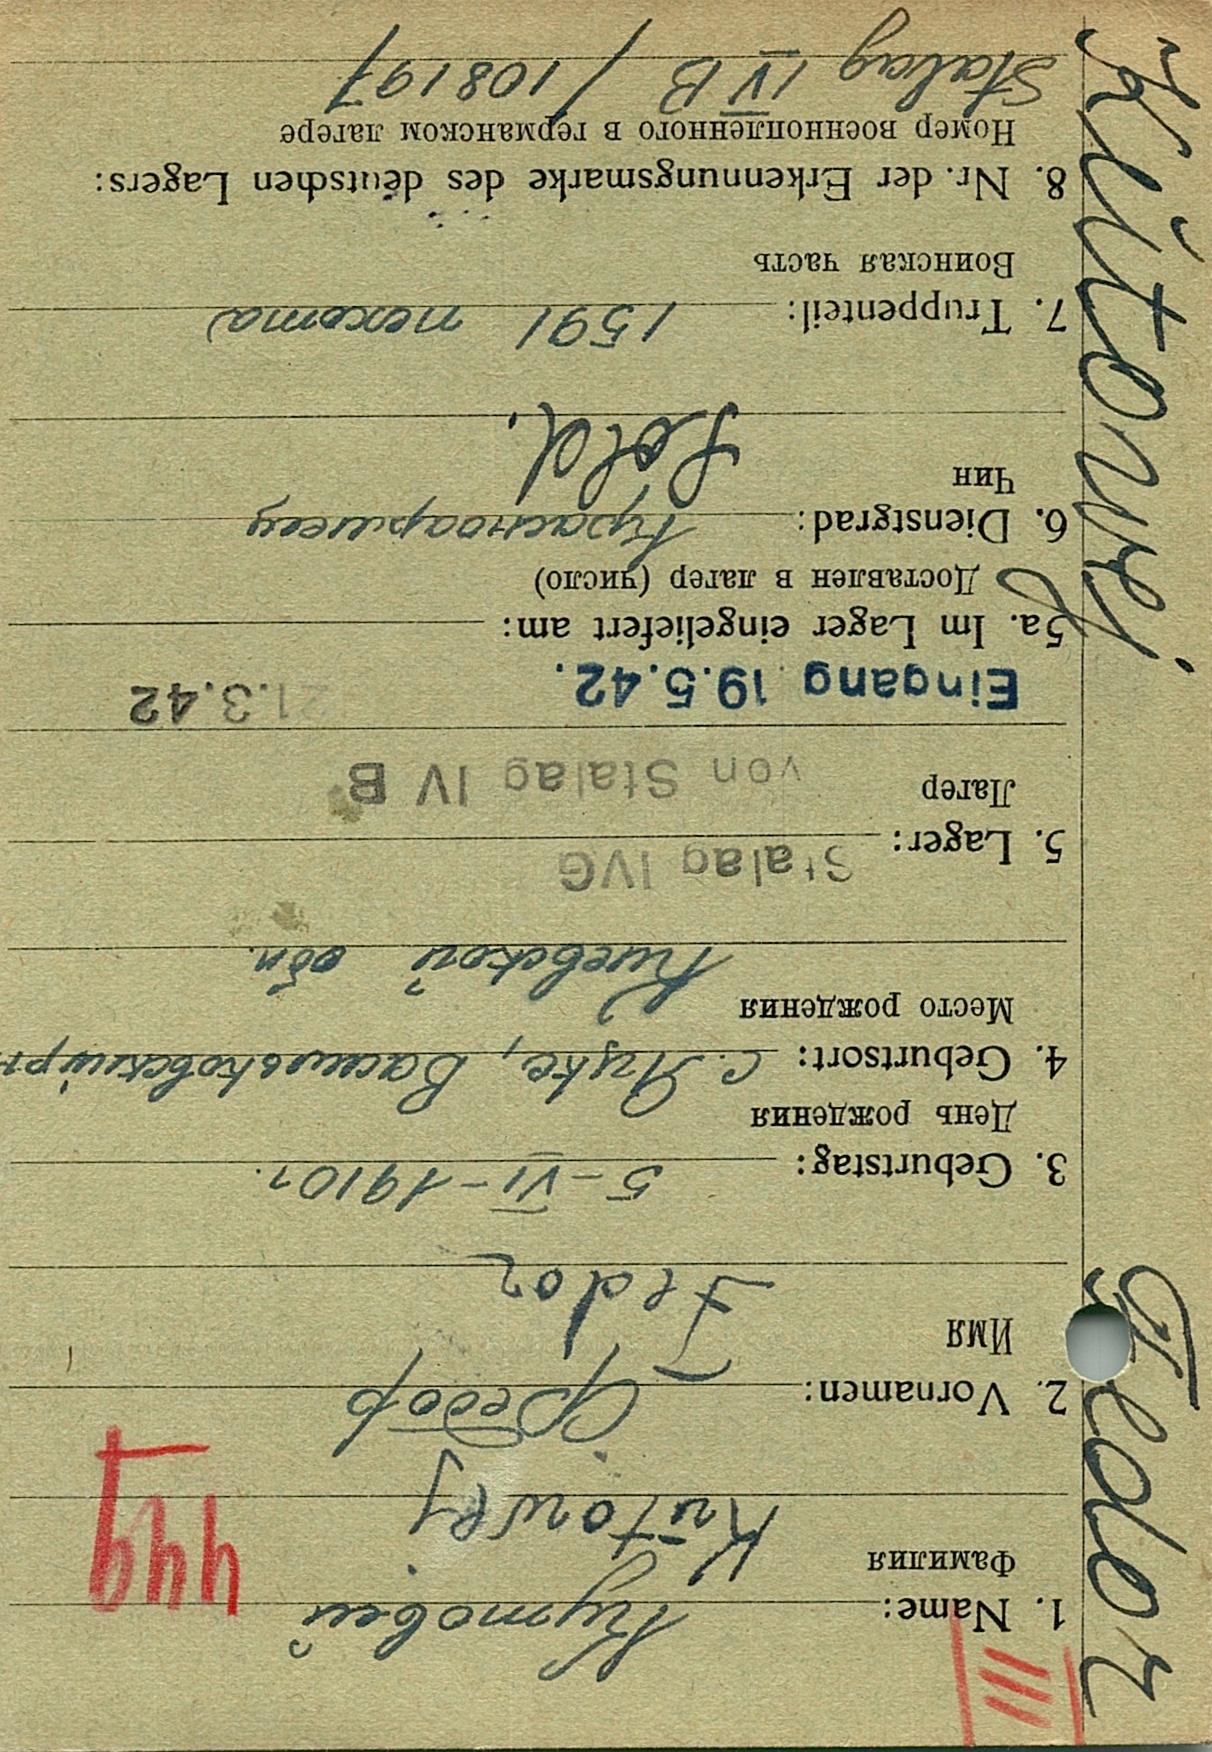 III
1. Name: Кутовей
Фамилия
Kutowej
449
2. Vornamen: Федор
Имя
Fedor
3. Geburtstag: 5-VI-1910г.
День рождения
4. Geburtsort: с.
Место рождения
Киевской обл.
5. Lager: Stalag IVG
Лагер
von Stalag IV B
Eingang 19.5.42. 21.3.42
5a. Im Lager eingeliefert am:
Доставлен в лагер (число)
6. Dienstgrad: Красноармеец
Чин
Sold.
7. Truppenteil: 1591 пехота
Воинская часть
8. Nr. der Erkennungsmarke des deutschen Lagers:
Номер военнопленного в германском лагере
Stalag IV B / 108197
Kutowej
Fedor